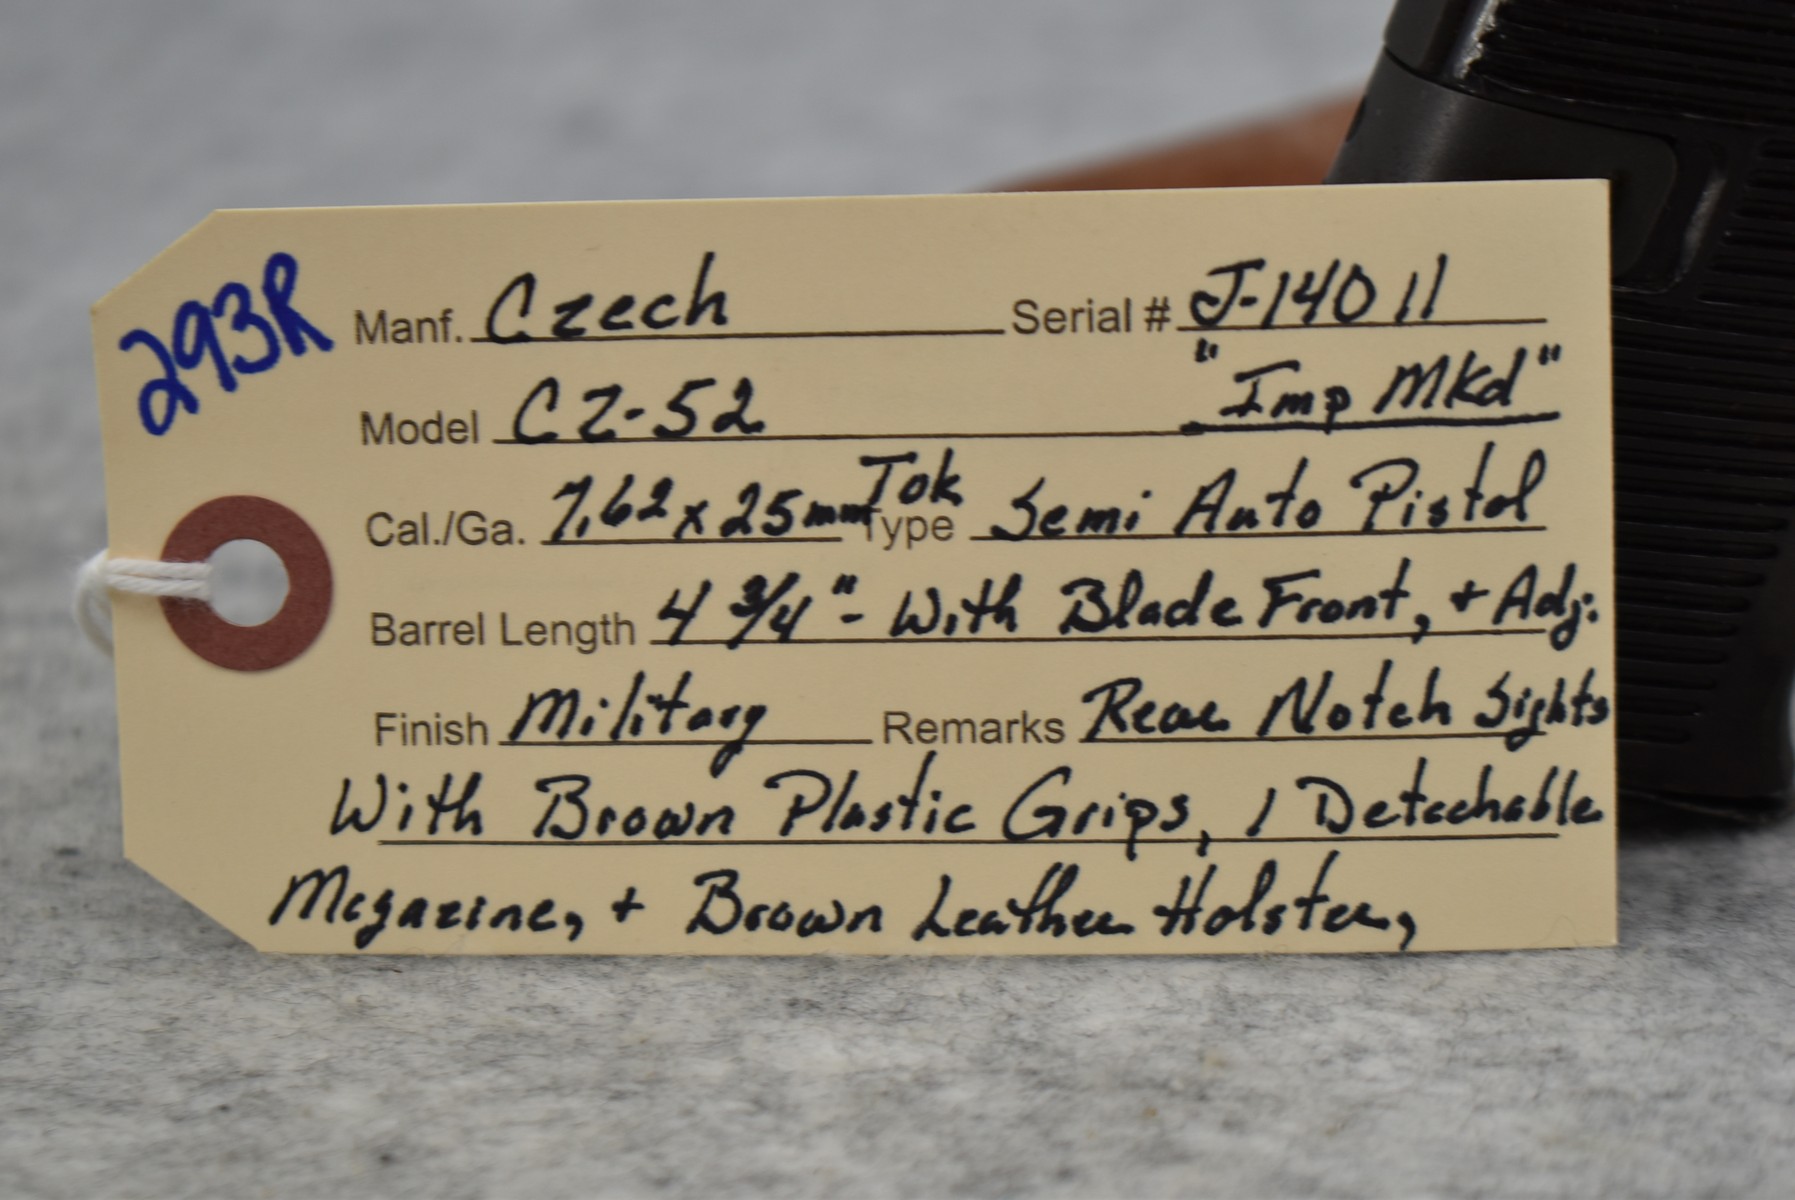 293R
Manf. Czech Serial # J-14011
Model CZ-52 "Imp Mkd"
Cal./Ga. 7.62x25mm Tok Type Semi Auto Pistol
Barrel Length 4 3/4"- With Blade Front, + Adj.
Finish Military Remarks Rear Notch Sights
With Brown Plastic Grips, 1 Detachable
Magazine, + Brown Leather Holster,